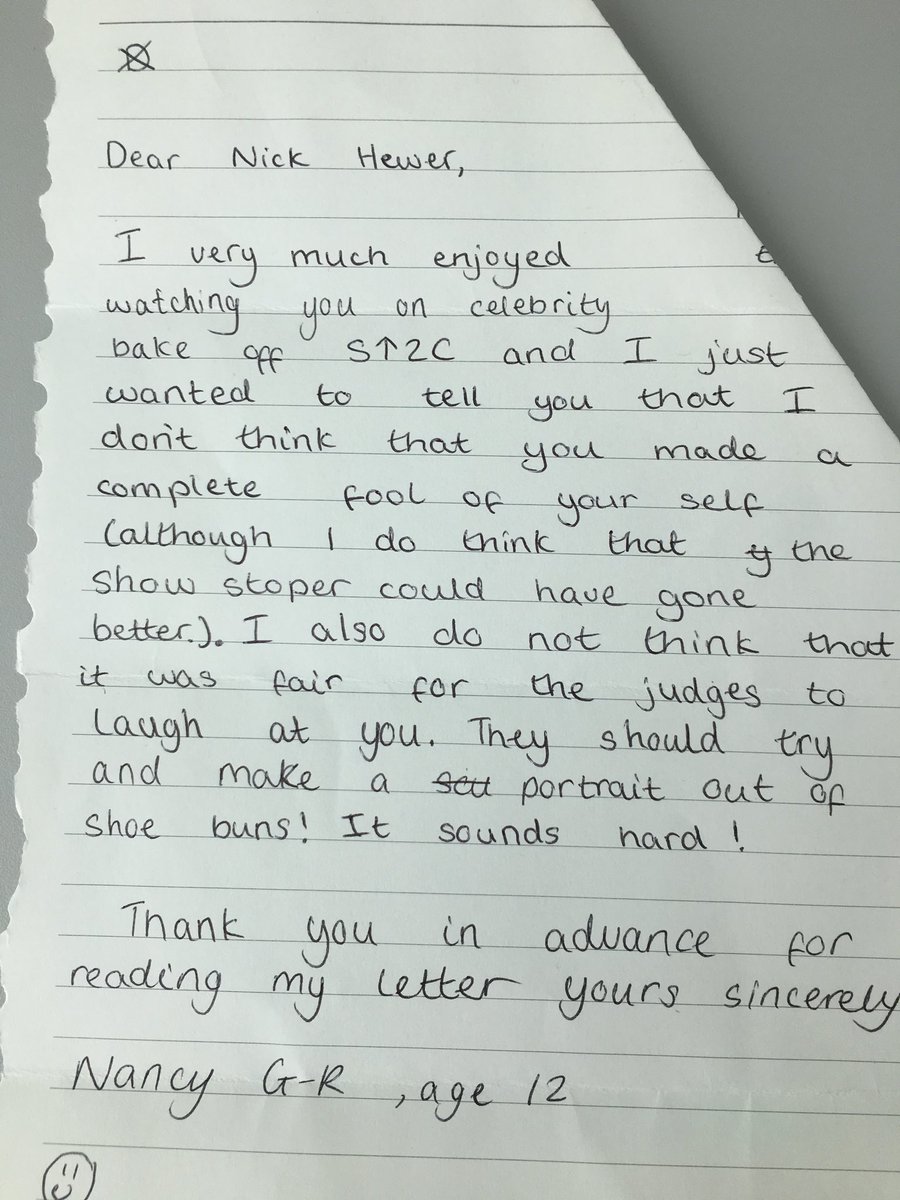 Dear Nick Hewer,
I very much enjoyed
watching you on celebrity
bake off S↑2C and I just
wanted to tell you that I
don't think that you made a
complete fool of your self
(although I do think that the
show stoper could have gone
better.). I also do not think that
it was fair for the judges to
laugh at you. They should try
and make a portrait out of
shoe buns! It sounds hard!
Thank you in advance for
reading my letter yours sincerely
Nancy G-R, age 12